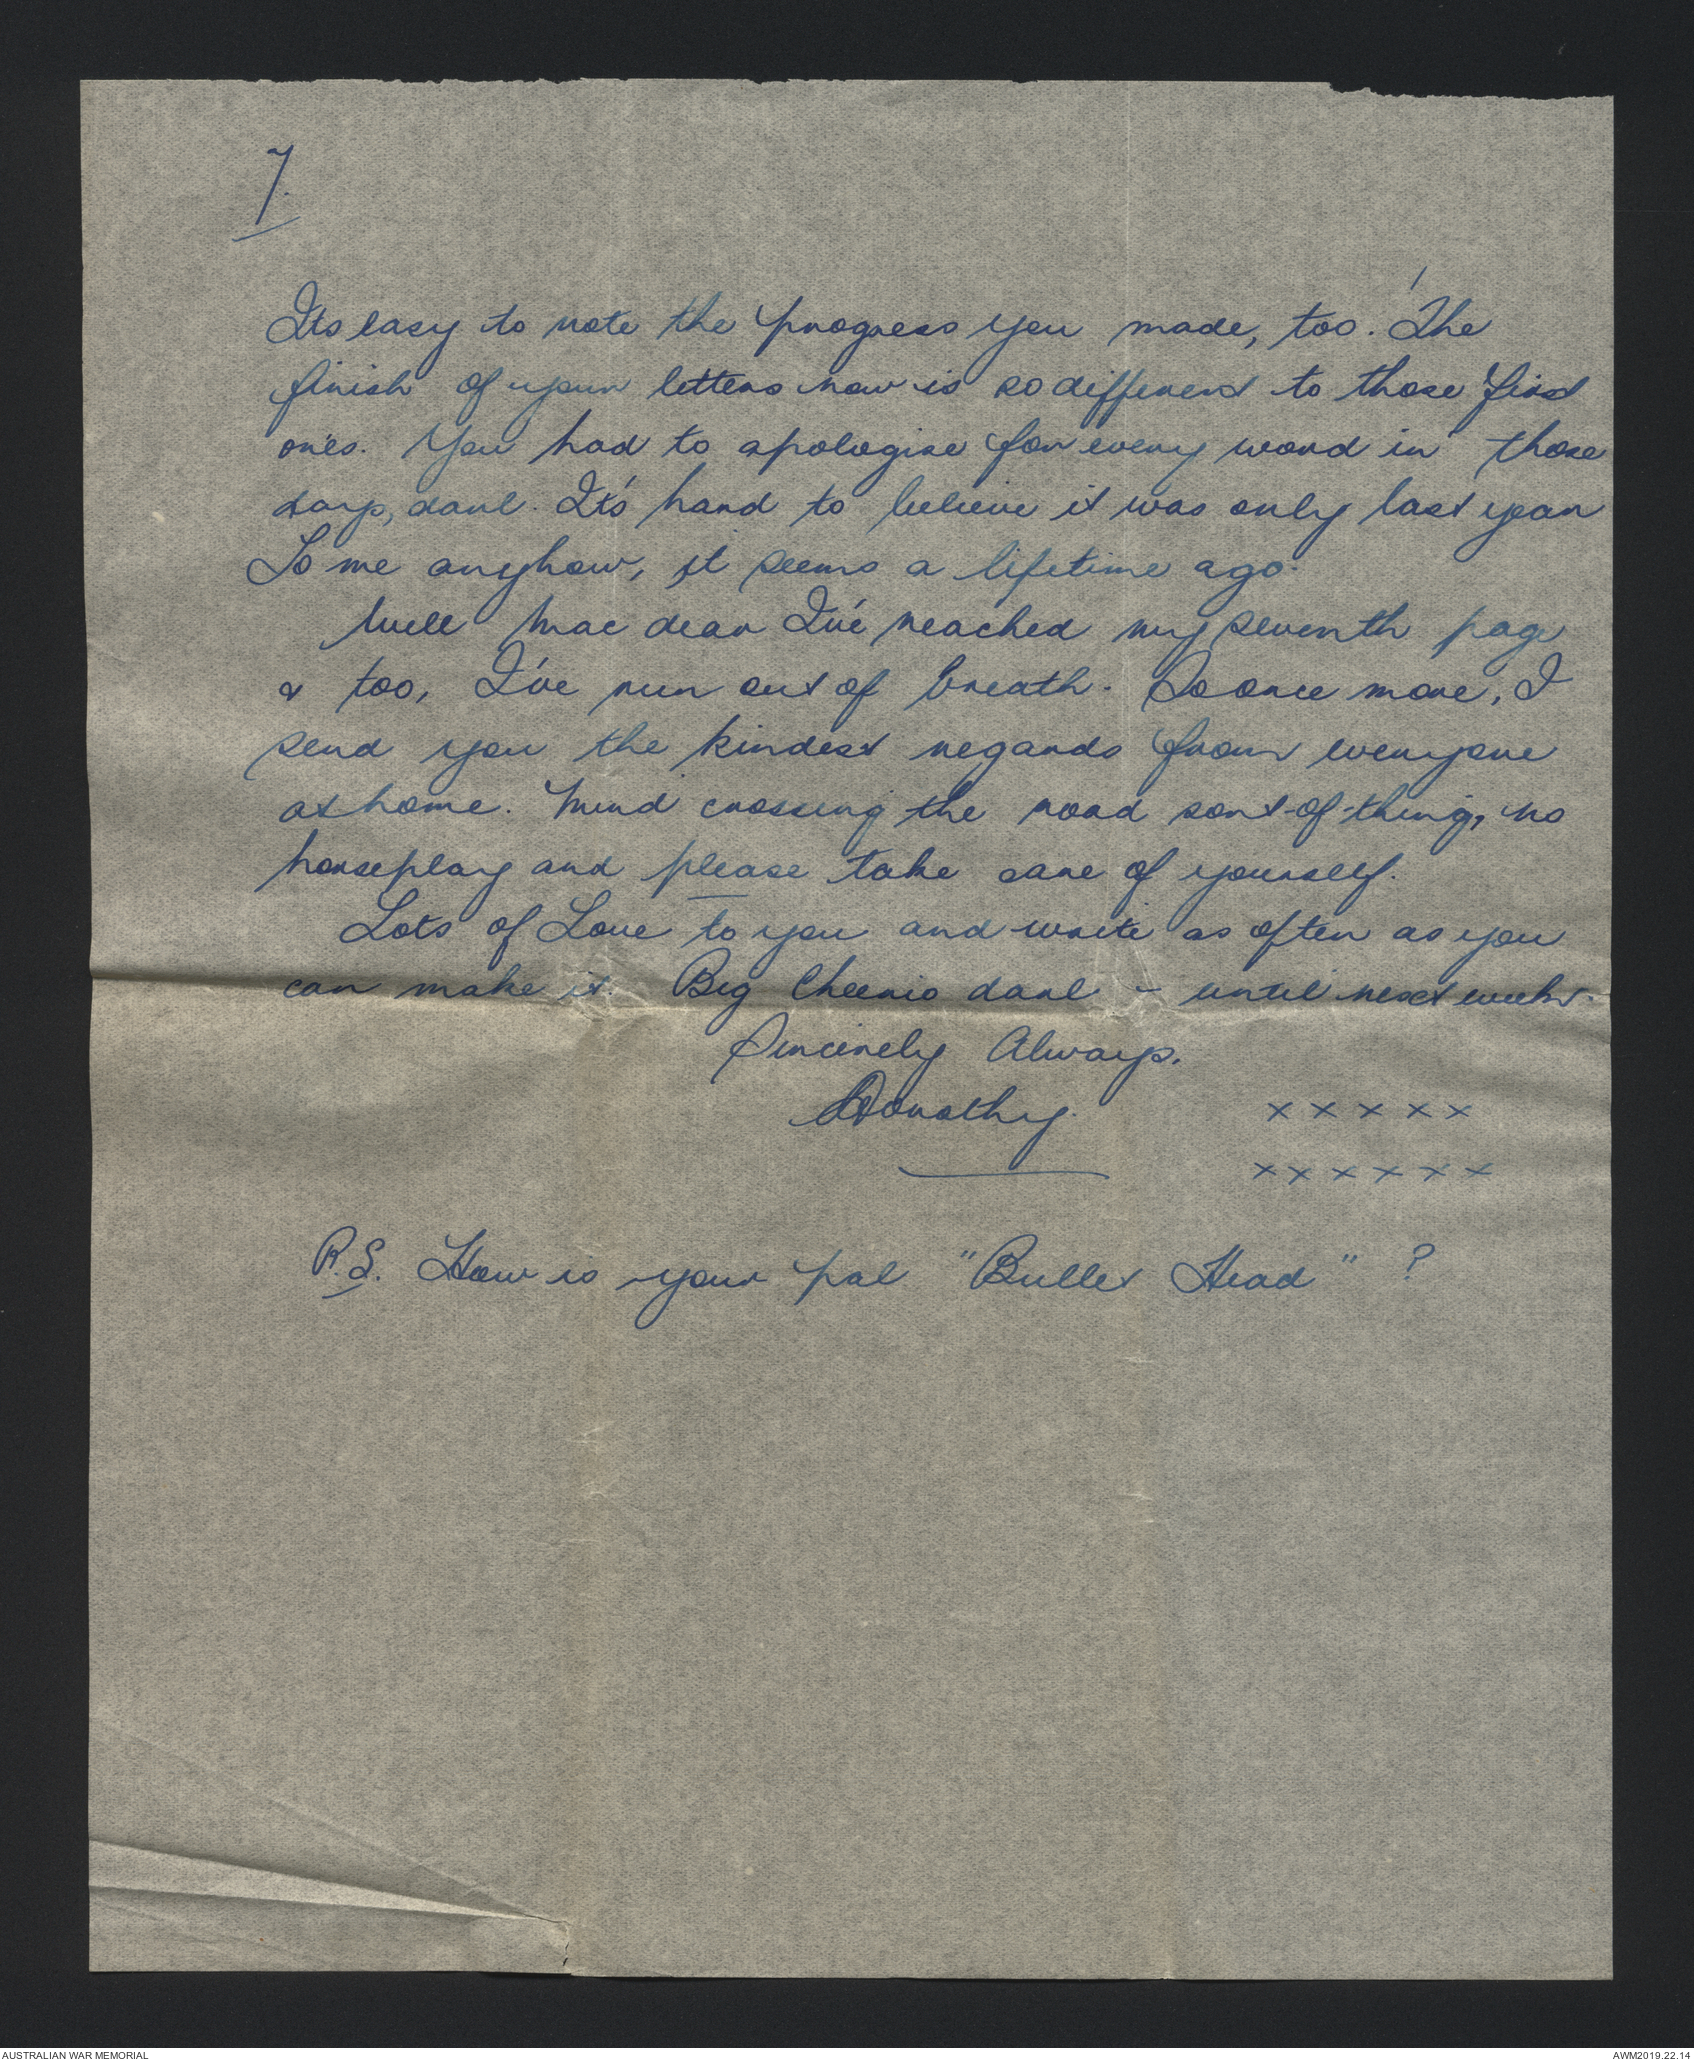 7.
Its easy to note the progress you made, too. The
finish of your letters now is so different to those first
ones. You had to apologise for every word in those
days, darl. It's hard to believe it was only last year
To me anyhow, it seems a lifetime ago.
Well Mac dear I've reached my seventh page
& too, I've run out of breath. So once more, I
send you the kindest regards from everyone
at home. Mind crossing the road sort-of-thing, no
horseplay and please take care of yourself.
Lots of Love to you and write as often as you
can make it. Big Cheerio darl - until next week.
Sincerely Always,
Dorothy. x x x x x
x x x x x x
P.S. How is your pal "Bullet Head" ?
AUSTRALIAN WAR MEMORIAL AWM2019.22.14